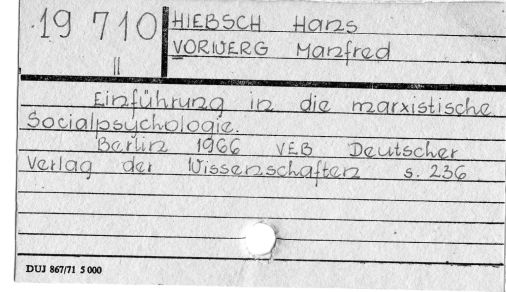 19 710
II
HIEBSCH Hans
VORWERG Manfred
Einführung in die marxistische
Socialpsychologie.
Berlin 1966 VEB Deutscher
Verlag der Wissenschaften s. 236
DUJ 867/71 5 000